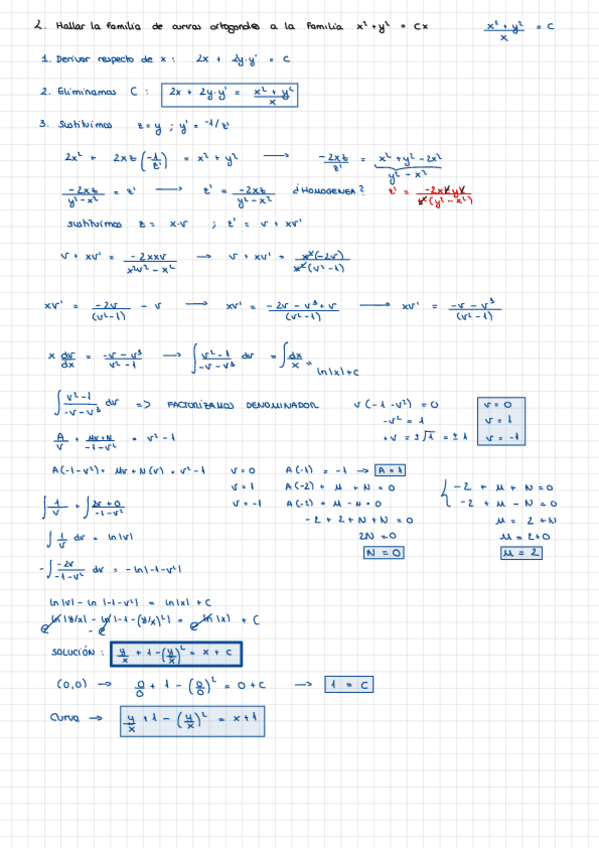 2. Hallar la familia de curvas ortogonales a la familia x² + y² = Cx    x² + y² / x = C
1. Derivar respecto de x : 2x + 2y·y' = C
2. Eliminamos C : 2x + 2y·y' = x² + y² / x
3. Sustituimos z = y ; y' = -1/z'
2x² + 2xz (-1/z') = x² + y² → -2xz / z' = x² + y² - 2x²
y² - x²
-2xz / y² - x² = z' → z' = -2xz / y² - x² ¿HOMOGENEA? z' = -2x·y / (y² - x²)
sustituimos z = x·v ; z' = v + xv'
v + xv' = -2xxv / x²v² - x² → v + xv' = x²(-2v) / x²(v² - 1)
xv' = -2v / (v² - 1) - v → xv' = -2v - v³ + v / (v² - 1) → xv' = -v - v³ / (v² - 1)
x dv/dx = -v - v³ / v² - 1 → ∫ v² - 1 / -v - v³ dv = ∫ dx/x = ln|x| + C
∫ v² - 1 / -v - v³ dv => FACTORIZAMOS DENOMINADOR v(-1 - v²) = 0 v = 0
-v² = 1 v = 1
+v = ±√1 = ±1 v = -1
A/v + Mv+N / -1-v² = v² - 1
A(-1 - v²) + Mv + N(v) = v² - 1 v = 0 A(-1) = -1 → A = 1
v = 1 A(-2) + M + N = 0 { -2 + M + N = 0
∫ 1/v + ∫ 2v+0 / -1-v² v = -1 A(-2) + M - N = 0 -2 + M - N = 0
-2 + 2 + N + N = 0 M = 2 + N
∫ 1/v dv = ln|v| 2N = 0 M = 2 + 0
N = 0 M = 2
-∫ -2v / -1-v² dv = -ln|-1-v²|
ln|v| - ln|-1-v²| = ln|x| + C
e ln|y/x| - e ln|-1-(y/x)²| = e ln|x| + C
SOLUCIÓN : y/x + 1 - (y/x)² = x + C
(0,0) → 0/0 + 1 - (0/0)² = 0 + C → 1 = C
Curva → y/x + 1 - (y/x)² = x + 1